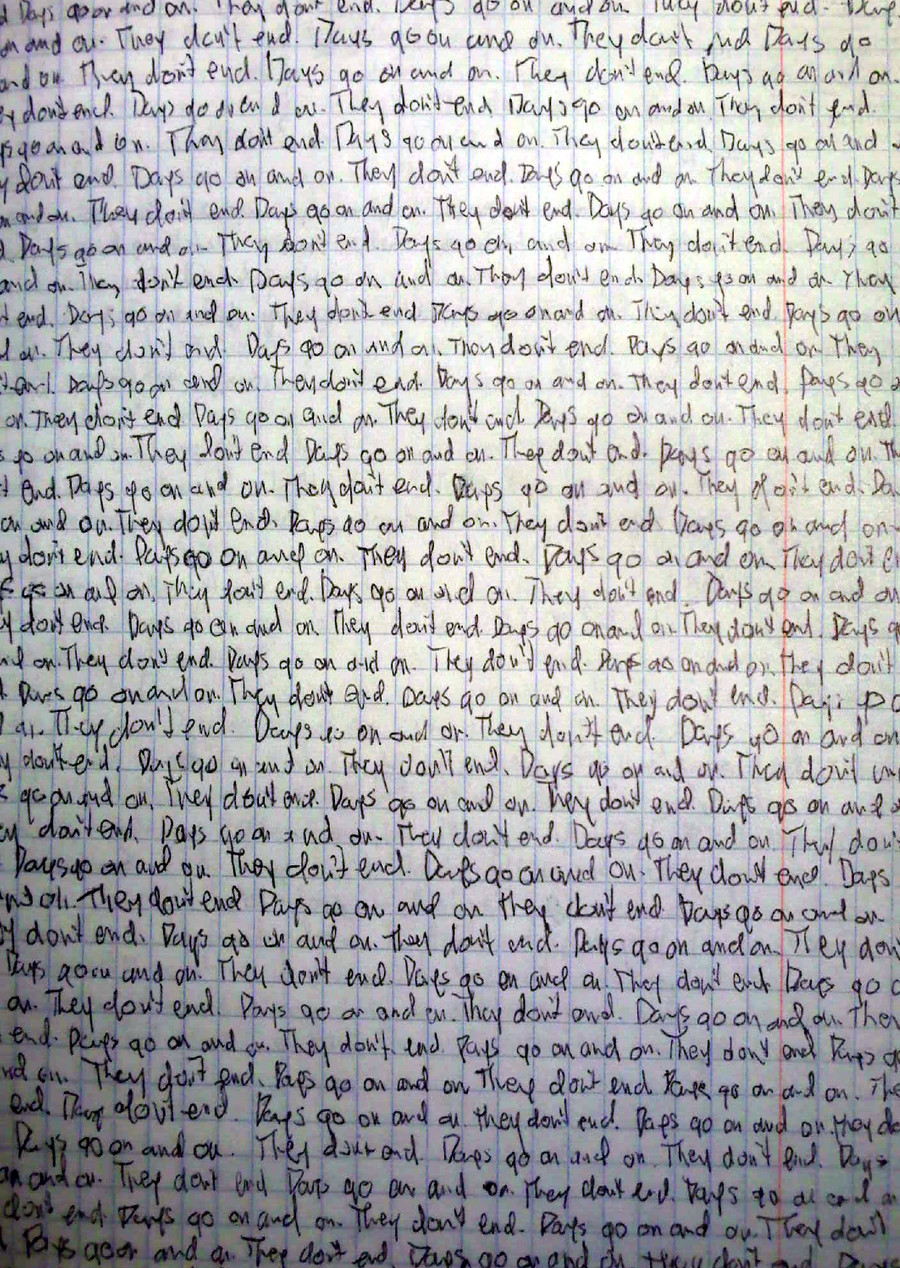 Days go on and on. They don't end. Days go on and on. They don't end. Days
on and on. They don't end. Days go on and on. They don't end Days go
and on. They don't end. Days go on and on. They don't end. Days go on and on.
don't end. Days go on and on. They don't end Days go on and on They don't end.
go on and on. They don't end. Days go on and on. They don't end. Days go on and
don't end. Days go on and on. They don't end. Days go on and on They don't end. Days
on and on. They don't end. Days go on and on. They don't end. Days go on and on. They don't
Days go on and on. They don't end. Days go on and on They don't end. Days go
and on. They don't end. Days go on and on. They don't end. Days go on and on They
end. Days go on and on. They don't end Days go on and on. They don't end. Days go on
on. They don't end. Days go on and on. They don't end. Days go on and on They
Days go on and on. They don't end. Days go on and on. They don't end. Days go
on. They don't end Days go on and on. They don't end. Days go on and on. They don't end.
go on and on. They don't end Days go on and on. They don't end. Days go on and on.
end. Days go on and on. They don't end. Days go on and on. They don't end.
on and on. They don't end. Days go on and on. They don't end Days go on and on
don't end. Days go on and on. They don't end. Days go on and on They don't
go on and on. They don't end. Days go on and on. They don't end. Days go on and on
don't end. Days go on and on. They don't end. Days go on and on They don't end. Days
on. They don't end. Days go on and on. They don't end. Days go on and on. They don't
Days go on and on. They don't end. Days go on and on. They don't end. Days
on. They don't end. Days go on and on. They don't end. Days go on and on
don't end. Days go on and on They don't end. Days go on and on. They don't
go on and on. They don't end. Days go on and on. They don't end. Days go on and
don't end. Days go on and on. They don't end. Days go on and on They
Days go on and on. They don't end. Days go on and on. They don't end. Days
and on. They don't end Days go on and on They don't end Days go on and on
don't end. Days go on and on. They don't end. Days go on and on They
Days go on and on. They don't end. Days go on and on. They don't end Days go
on. They don't end. Days go on and on. They don't end. Days go on and on. They
end. Days go on and on. They don't end. Days go on and on. They don't end Days
on. They don't end. Days go on and on They don't end Days go on and on.
end. They don't end. Days go on and on they don't end. Days go on and on. they
Days go on and on. They don't end. Days go on and on. They don't end. Days
on and on. They don't end Days go on and on. They don't end. Days go on and
don't end. Days go on and on. They don't end. Days go on and on. They don't
Days go on and on They don't end. Days go on and on they don't end Days